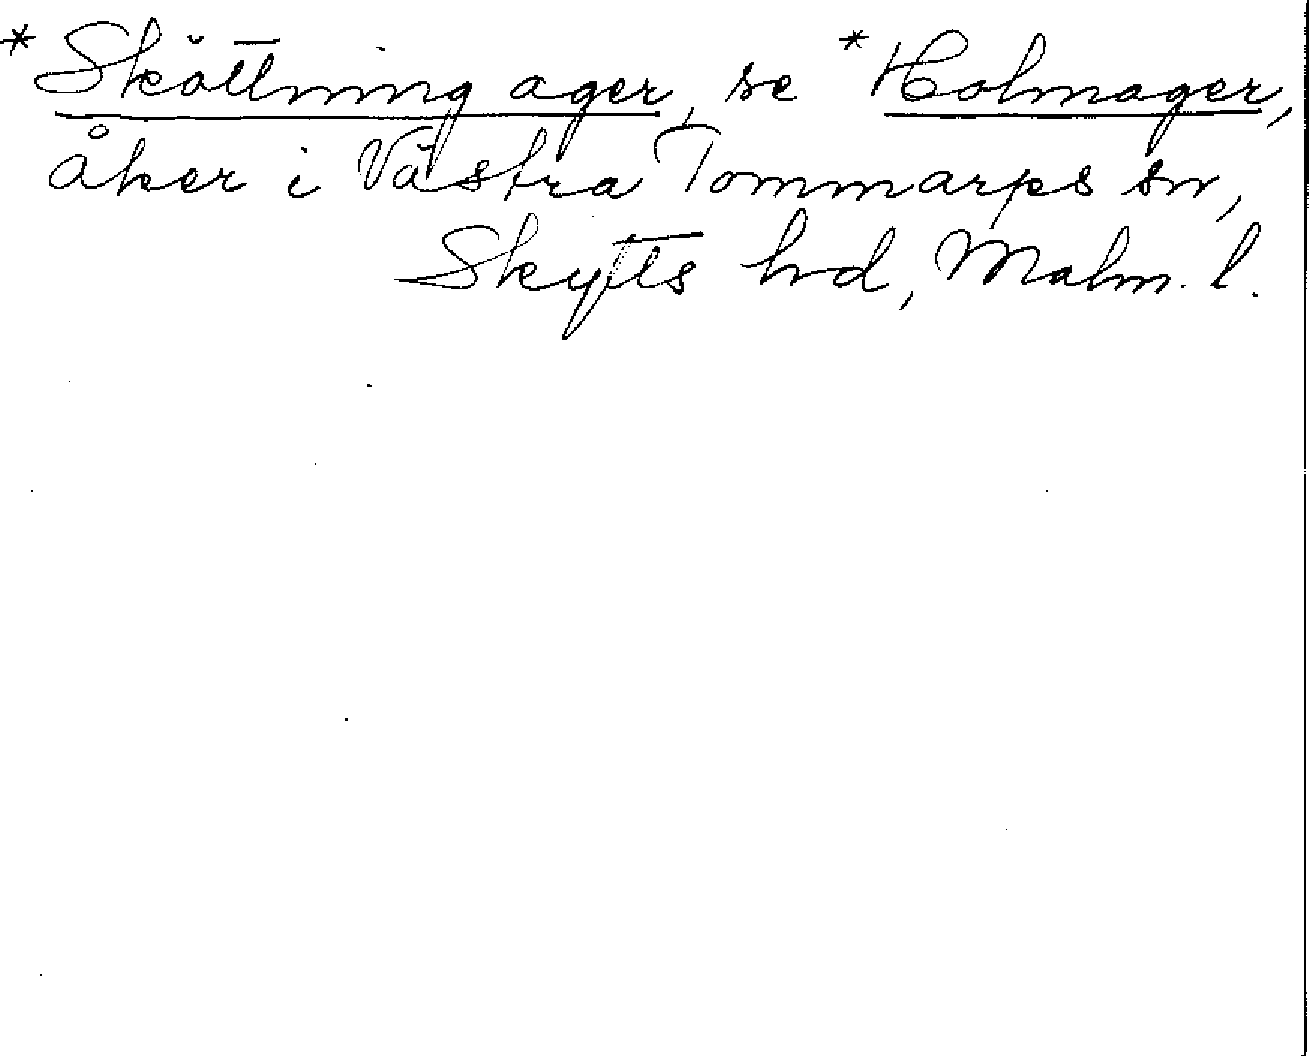 *Sköttning ager, se *Holmager,
åker i Västra Tommarps sn,
Skytts hd, Malm. l.